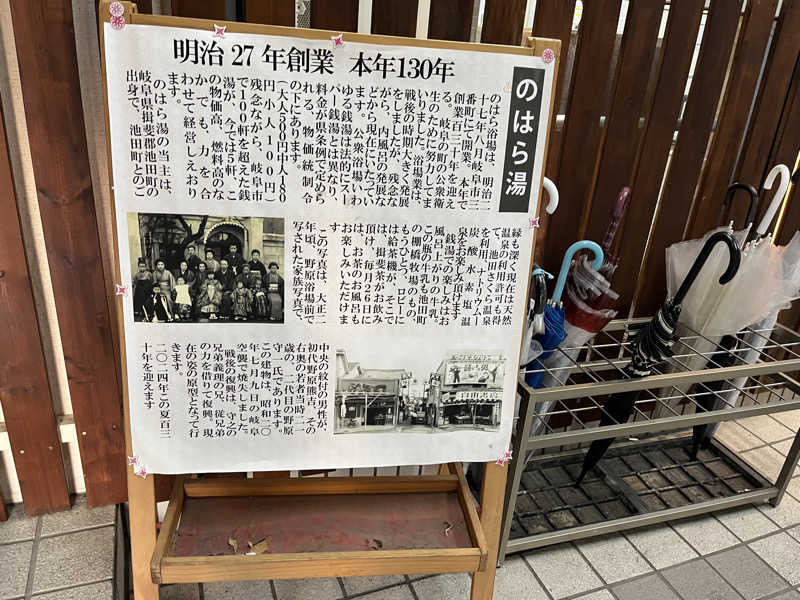 明治27年創業 本年130年
のはら湯
のはら浴場は、明治二
十七年八月岐阜市三
番町にて開業。本年で
創業百三十年を迎え
る。岐阜の町の公衆衛
生のために努力してま
いりました。浴場業は、
戦後の時期大きく発展
をしましたが、残念な
がら、内風呂の発展な
どから現在にいたってい
ます。公衆浴場いわ
ゆる銭湯は法的にスー
パー銭湯とは異なり、
料金が県条例で定めら
れる、物価統制令
の下にあります。
（大人500円中人180
円小人100円）
残念ながら、岐阜市
で100軒を超えた銭
湯が、今では5軒、こ
の物価高、燃料高のな
かでも、力を合
わせて経営しえおり
ます。
のはら湯の当主は、
岐阜県揖斐郡池田町の
出身で、池田町とのご
縁も深く現在は天然
温泉の利用許可も得
て、池田さくら温泉
を利用、ナトリウムー
炭酸水素塩温
泉をお楽しみ頂けます
銭湯での楽しみはお
風呂上がりの牛乳。
この瓶の牛乳も池田町
の棚橋牧場のもの
もうひとつ、ロビーに
は給茶機が、そこで
は、揖斐茶がお飲み
頂け、毎月26日に
は、お茶のお風呂も
お楽しみいただけま
す
この写真は、大正二
年頃、野原浴場前で
写された家族写真で、
中央の紋付の男性が、
初代野原熊吉、その
右奥の若者当時二一
歳の、二代目の野原
守一氏であります。
この建物は、昭和二〇
年七月九日の岐阜
空襲で焼失しました。
戦後の復興は、守之の
兄弟義理の兄、従兄弟
の力を借りて復興、現
在の姿の原型となって行
きます。
二〇二四年この夏百三
十年を迎えます